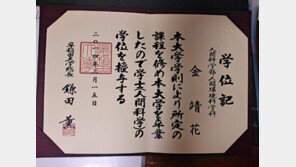 学位記
人間科学部人間環境科学科
金靖花
本大学学則により所定の
課程を修め本大学を卒業
したので学士(人間科学)の
学位を授与する
二〇一四年三月一五日
早稲田大学総長
鎌田薫